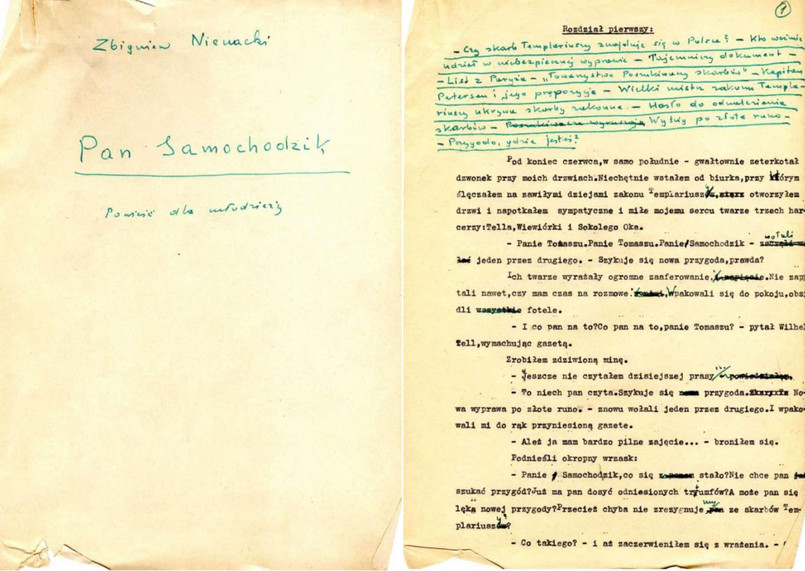 Zbigniew Nienacki
Pan Samochodzik
Powieść dla młodzieży
1
Rozdział pierwszy:
- Czy skarb Templariuszy znajduje się w Polsce? - Kto weźmie
udział w niebezpiecznej wyprawie - Tajemniczy dokument -
- List z Paryża - "Towarzystwo Poszukiwaczy skarbów" - Kapitan
Petersen i jego propozycja - Wielki mistrz zakonu Templa-
riuszy ukrywa skarby zakonne. - Hasło do odnalezienia
skarbów - Wyścig po złote runo -
- Przygodo, gdzie jesteś?
Pod koniec czerwca,w samo południe - gwałtownie zeterkotał
dzwonek przy moich drzwiach.Niechętnie wstałem od biurka,przy którym
ślęczałem na zawiłymi dziejami zakonu Templariuszy, otworzyłem
drzwi i napotkałem sympatyczne i miłe mojemu sercu twarze trzech har
cerzy:Tella,Wiewiórki i Sokolego Oka.
- Panie Tomaszu.Panie Tomaszu.Panie Samochodzik - wołali
jeden przez drugiego. - Szykuje się nowa przygoda,prawda?
Ich twarze wyrażały ogromne zaaferowanie.Nie zapy
tali nawet,czy mam czas na rozmowe. Wpakowali się do pokoju,obsi
dli fotele.
- I co pan na to?Co pan na to,panie Tomaszu? - pytał Wilhel
Tell,wymachując gazetą.
Zrobiłem zdziwioną minę.
- Jeszcze nie czytałem dzisiejszej prasy...
- To niech pan czyta.Szykuje się przygoda. No-
wa wyprawa po złote runo - znowu wołali jeden przez drugiego.I wpako-
wali mi do rąk przyniesioną gazete.
- Ależ ja mam bardzo pilne zajęcie... - broniłem się.
Podnieśli okropny wrzask:
- Panie Samochodzik,co się stało?Nie chce pan
szukać przygód?Już ma pan dosyć odniesionych tryumfów?A może pan się
lęka nowej przygody?Przecież chyba nie zrezygnujemy ze skarbów Tem-
plariuszy?
- Co takiego? - i aż zaczerwieniłem się z wrażenia. -